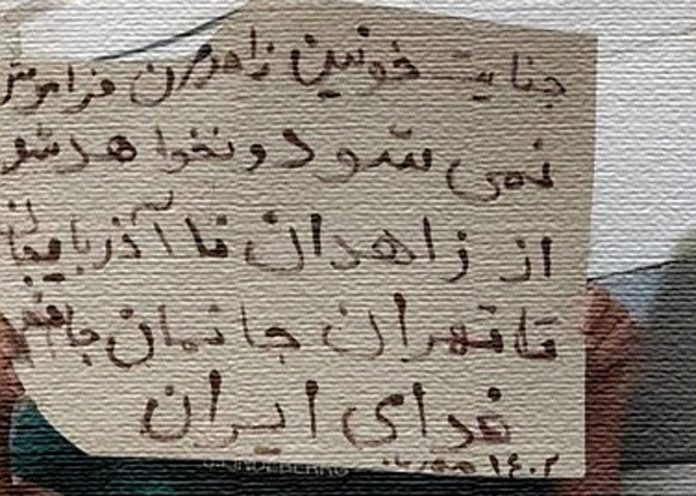 جنایت خونین زاهدان فراموش
نمی شود و نخواهد شد
از زاهدان تا آذربایجان
تا تهران جانمان
فدای ایران
۱۴۰۲